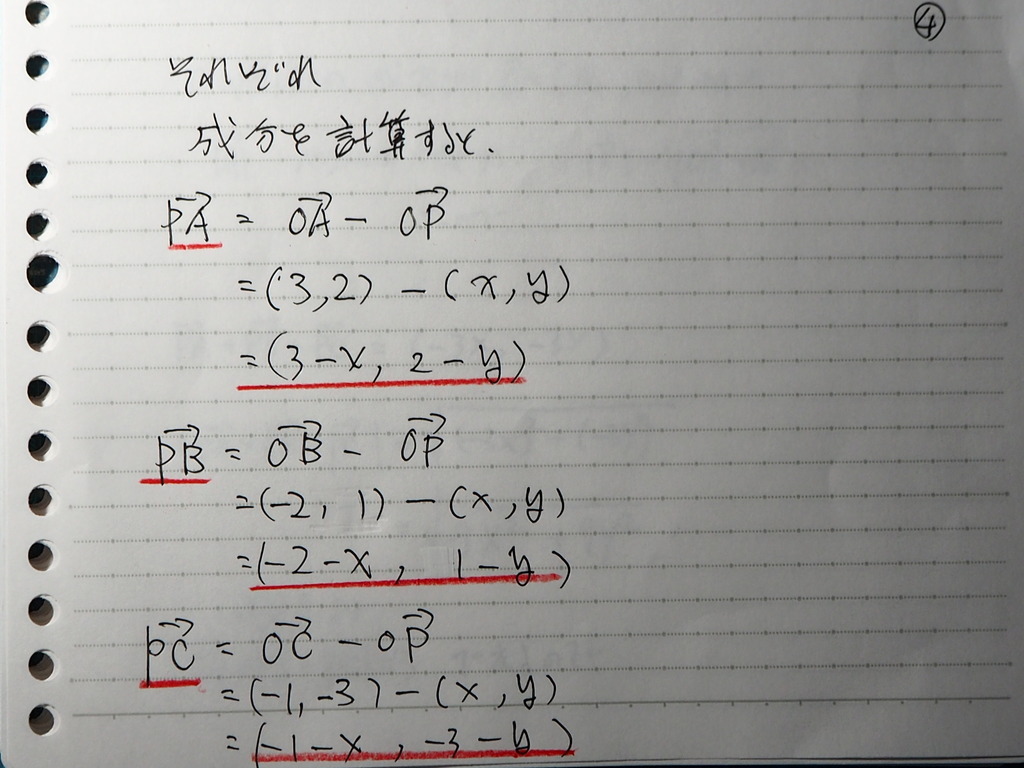 ④
それぞれ
成分を計算すると、
PA→ = OA→ - OP→
=(3,2) - (x,y)
=(3-x, 2-y)
PB→ = OB→ - OP→
=(-2, 1) - (x,y)
=(-2-x, 1-y)
PC→ = OC→ - OP→
=(-1,-3) - (x,y)
=(-1-x, -3-y)